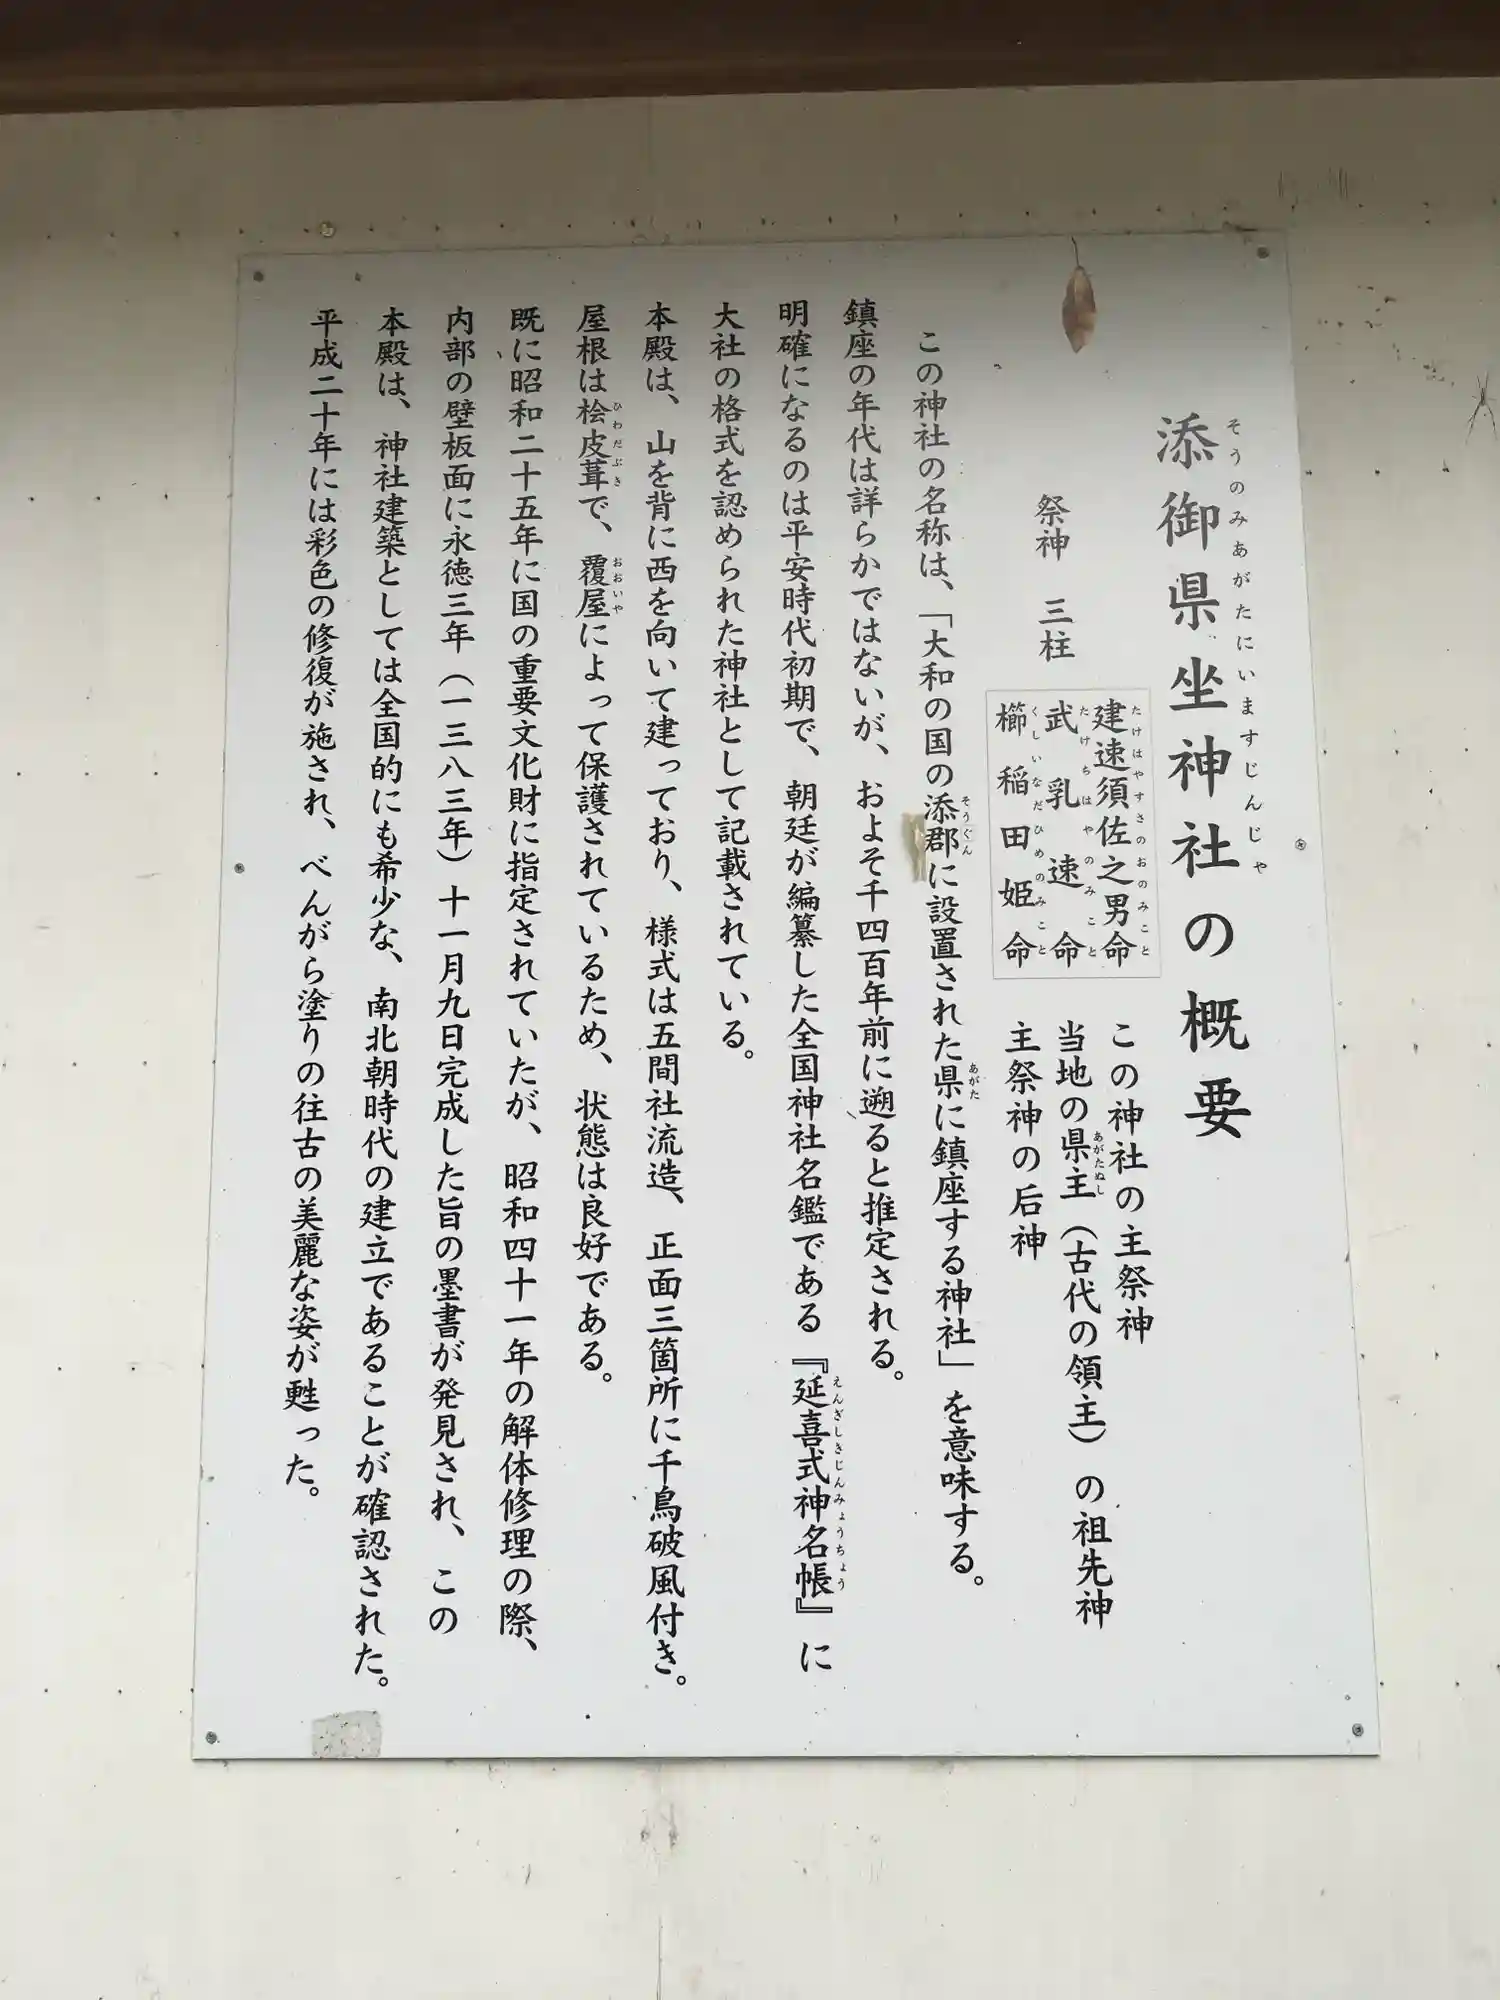 添御県坐神社の概要
そうのみあがたにいますじんじゃ
祭神 三柱
建速須佐之男命 この神社の主祭神
たけはやすさのおのみこと
武乳速命 当地の県主（古代の領主）の祖先神
たけちはやのみこと あがたぬし
櫛稲田姫命 主祭神の后神
くしいなだひめのみこと
この神社の名称は、「大和の国の添郡に設置された県に鎮座する神社」を意味する。
そうぐん あがた
鎮座の年代は詳らかではないが、およそ千四百年前に遡ると推定される。
明確になるのは平安時代初期で、朝廷が編纂した全国神社名鑑である『延喜式神名帳』に
えんぎしきじんみょうちょう
大社の格式を認められた神社として記載されている。
本殿は、山を背に西を向いて建っており、様式は五間社流造、正面三箇所に千鳥破風付き。
屋根は桧皮葺で、覆屋によって保護されているため、状態は良好である。
ひわだぶき おおいや
既に昭和二十五年に国の重要文化財に指定されていたが、昭和四十一年の解体修理の際、
内部の壁板面に永徳三年（一三八三年）十一月九日完成した旨の墨書が発見され、この
本殿は、神社建築としては全国的にも希少な、南北朝時代の建立であることが確認された。
平成二十年には彩色の修復が施され、べんがら塗りの往古の美麗な姿が甦った。